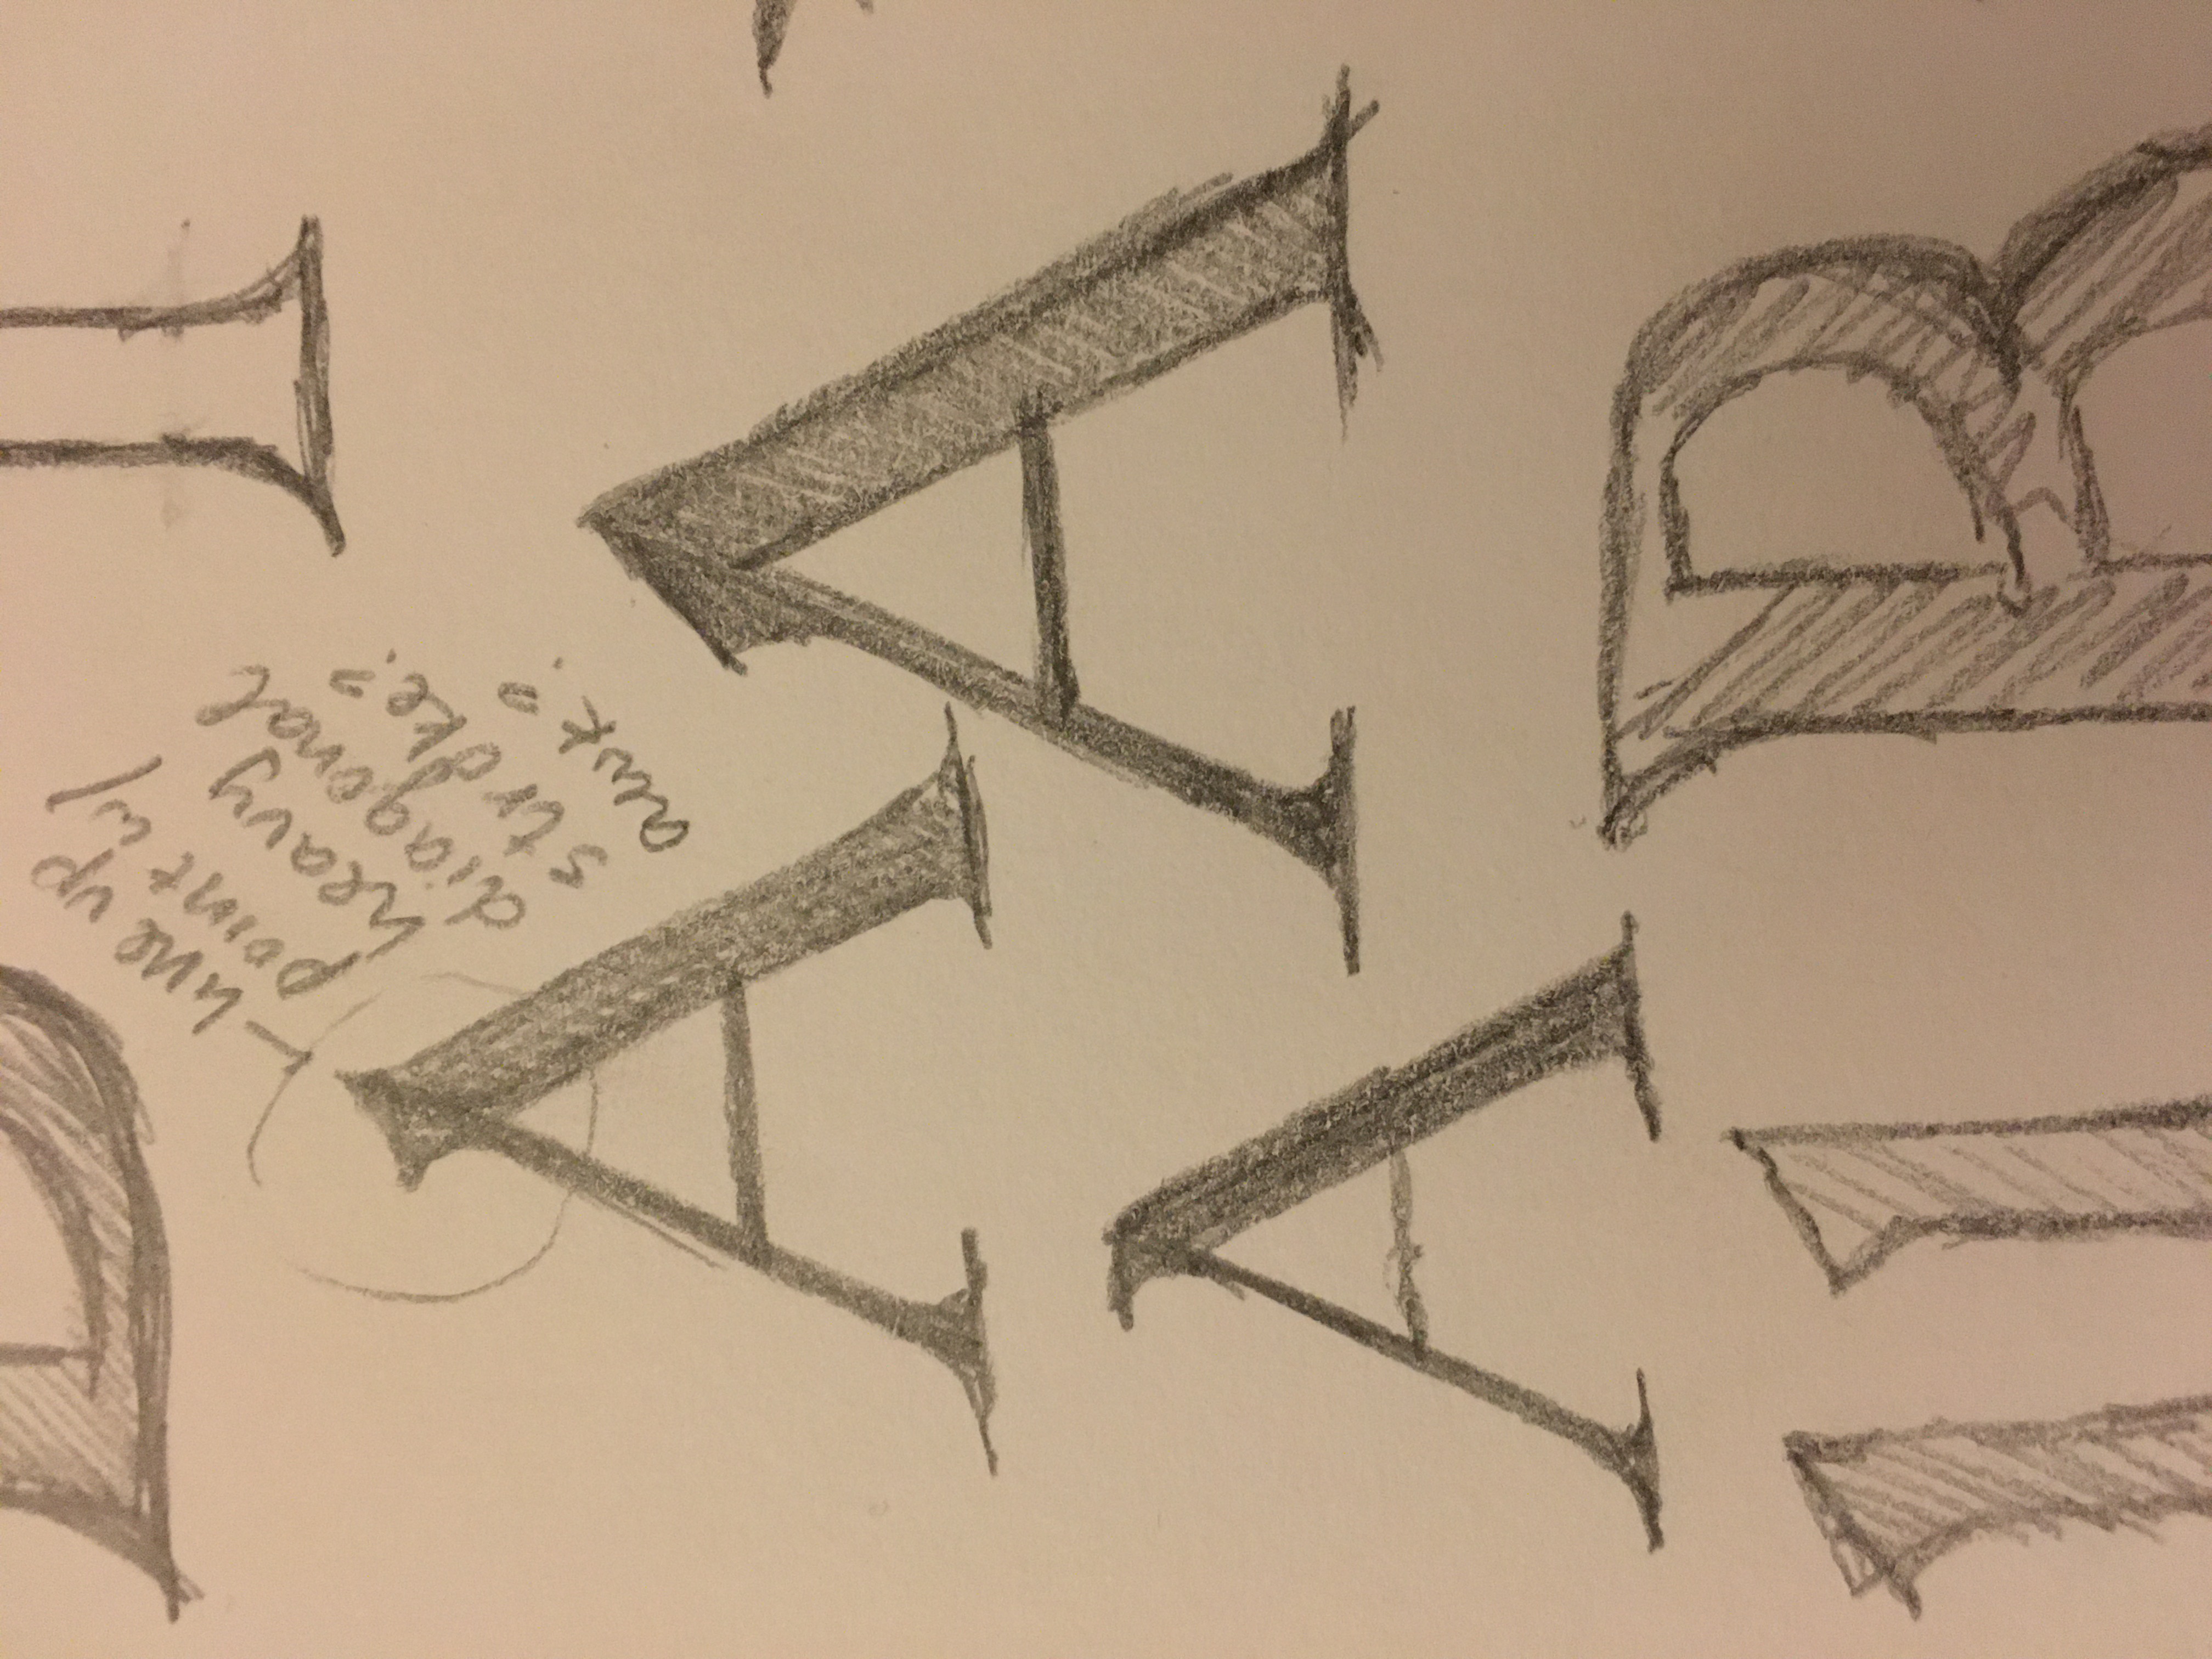 line up
point w/
heavy
diagonal
stroke?
awk?
A
A
A
R